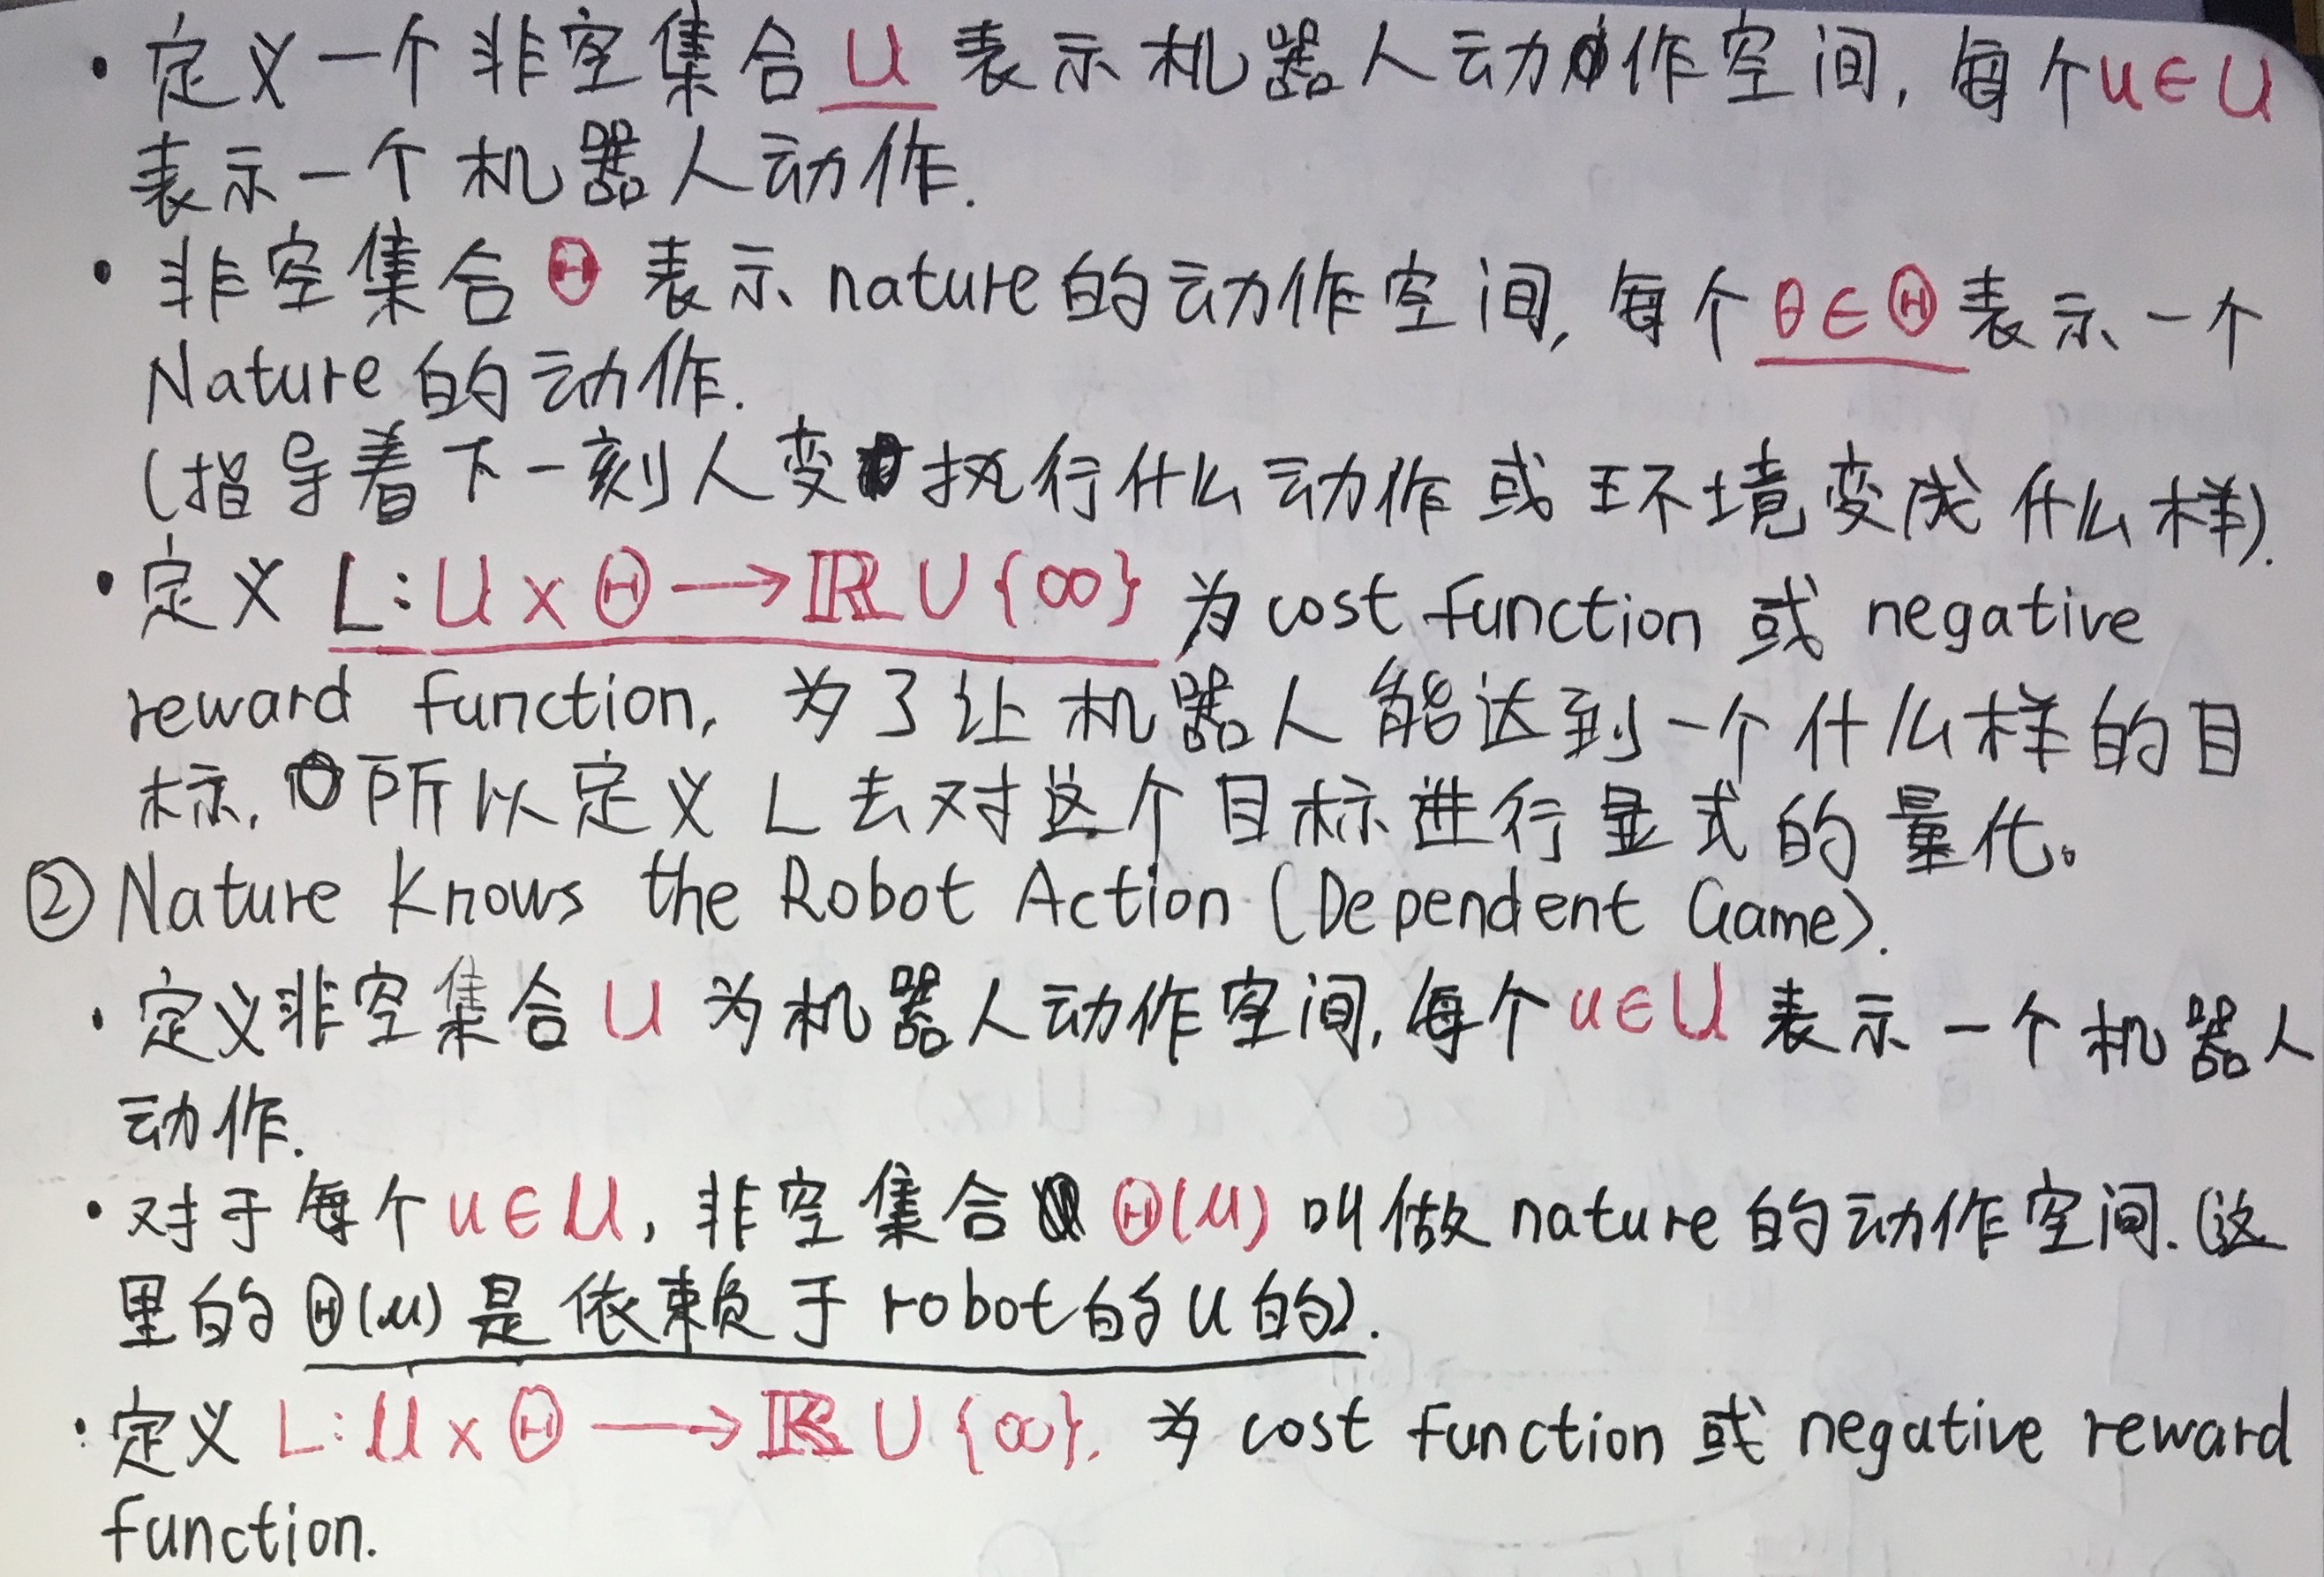 • 定义一个非空集合 U 表示机器人动作空间, 每个 u∈U
表示一个机器人动作.
• 非空集合 Θ 表示 nature 的动作空间, 每个 θ∈Θ 表示一个
Nature 的动作.
(指导着下一刻人变执行什么动作或环境变成什么样).
• 定义 L: U × Θ → ℝ ∪ {∞} 为 cost function 或 negative
reward function, 为了让机器人能达到一个什么样的目
标, 所以定义 L 去对这个目标进行显式的量化。
② Nature Knows the Robot Action (Dependent Game).
• 定义非空集合 U 为机器人动作空间, 每个 u∈U 表示一个机器人
动作.
• 对于每个 u∈U, 非空集合 Θ(u) 叫做 nature 的动作空间. (这
里的 Θ(u) 是依赖于 robot 的 u 的).
• 定义 L: U × Θ → ℝ ∪ {∞}. 为 cost function 或 negative reward
function.